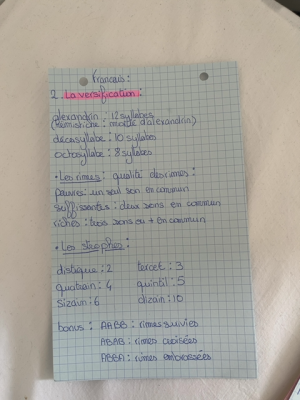 Français :
2. La versification :
alexandrin : 12 syllabes
(hémistiche : moitié d'alexandrin)
décasyllabe : 10 syllabes
octosyllabe : 8 syllabes
• Les rimes : qualité des rimes :
pauvres : un seul son en commun
suffisantes : deux sons en commun
riches : trois sons ou + en commun
• Les strophes :
distique : 2 tercet : 3
quatrain : 4 quintil : 5
sizain : 6 dizain : 10
bonus : AABB : rimes suivies
ABAB : rimes croisées
ABBA : rimes embrassées